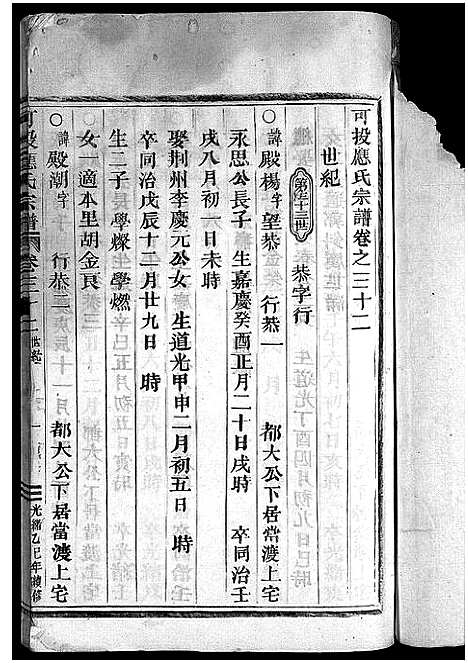 可投應氏宗譜卷之三十二
世紀
第三十三世 恭字行
○諱殿楊字望恭 行恭一 都大公下居當渡上宅
永思公長子 生嘉慶癸酉正月二十日戌時 卒同治壬
戌八月初一日未時
娶荆州李慶元公女 生道光甲申二月初五日 時
卒同治戊辰十二月廿九日 時
生二子長學燦 生學燃
女一適本里胡金良
○諱殿潮字 行恭二 都大公下居當渡上宅
可投應氏宗譜 卷三十二 世紀 一 光緒乙巳年續修